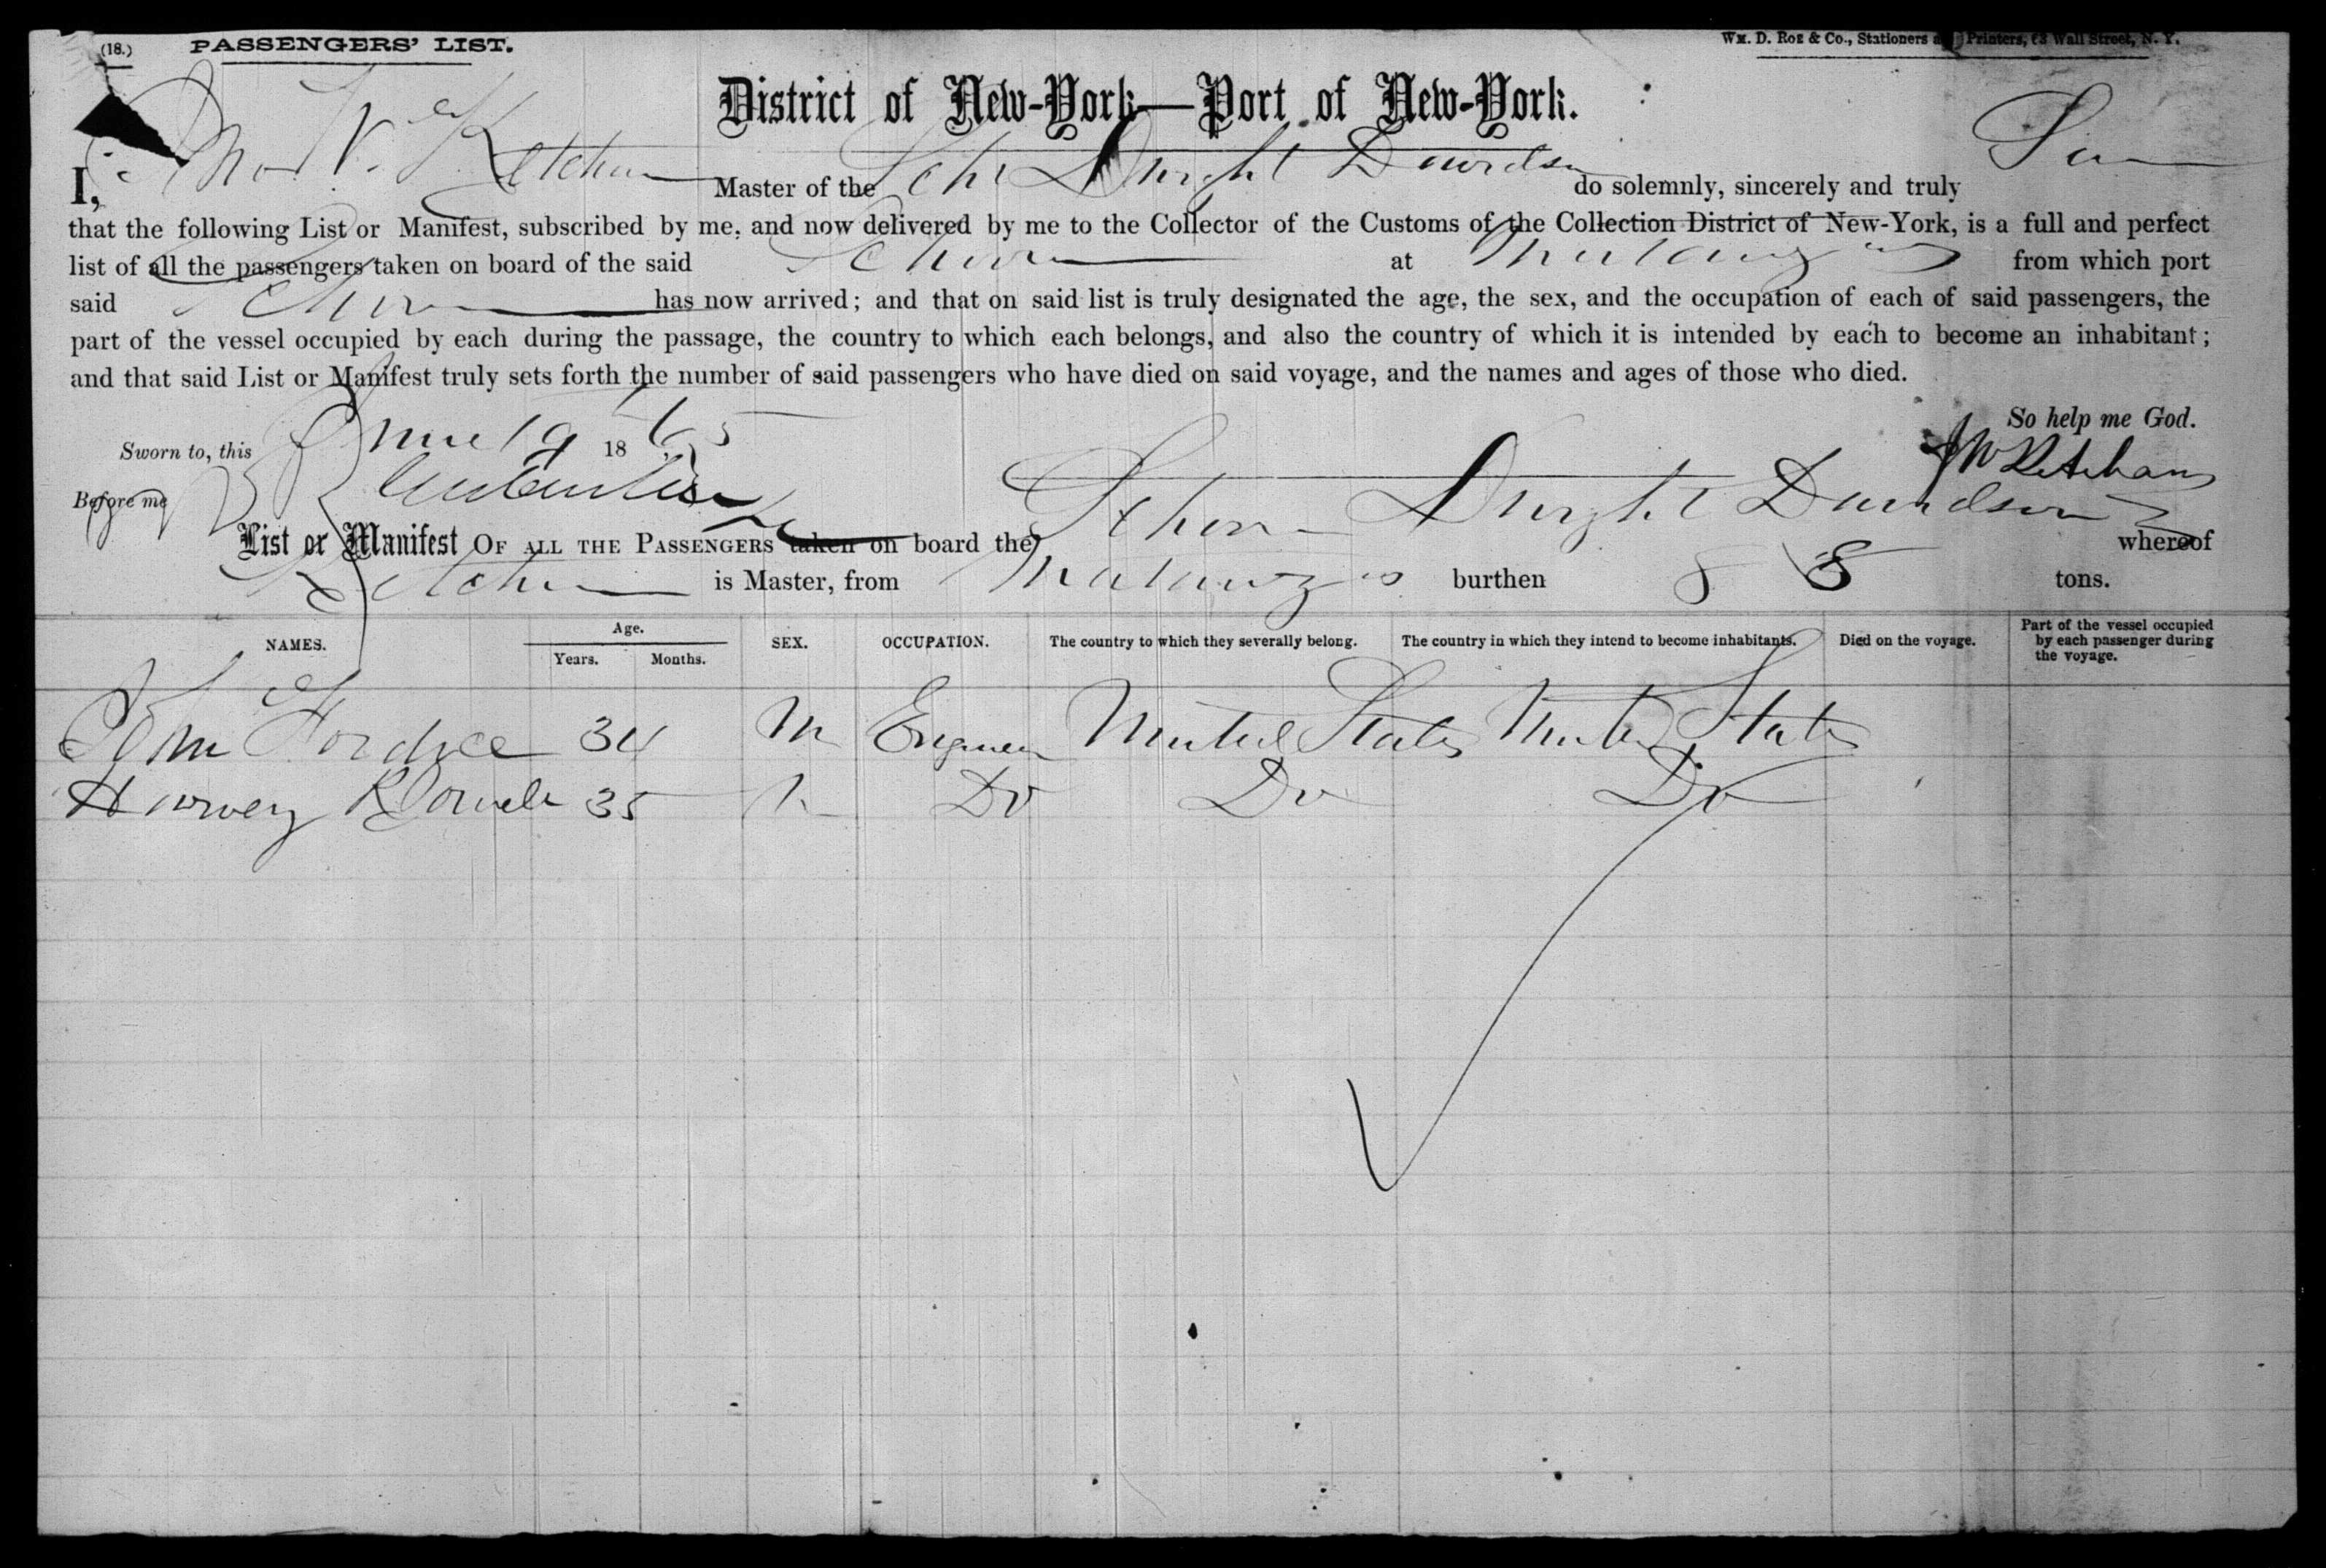 (18.) PASSENGERS' LIST. WM. D. ROE & CO., Stationers Printers, Wall Street, N. Y.
District of New-York—Port of New-York.
I, W. Ketcham Master of the Schr Dwight Davidson do solemnly, sincerely and truly
that the following List or Manifest, subscribed by me, and now delivered by me to the Collector of the Customs of the Collection District of New-York, is a full and perfect
list of all the passengers taken on board of the said Schr at Matanzas from which port
said Schr has now arrived; and that on said list is truly designated the age, the sex, and the occupation of each of said passengers, the
part of the vessel occupied by each during the passage, the country to which each belongs, and also the country of which it is intended by each to become an inhabitant;
and that said List or Manifest truly sets forth the number of said passengers who have died on said voyage, and the names and ages of those who died.
So help me God.
Sworn to, this June 19 1865 J W Ketcham
Before me
List or Manifest OF ALL THE PASSENGERS taken on board the Schr Dwight Davidson whereof
Ketcham is Master, from Matanzas burthen 88 tons.
NAMES. Age. Years. Months. SEX. OCCUPATION. The country to which they severally belong. The country in which they intend to become inhabitants. Died on the voyage. Part of the vessel occupied by each passenger during the voyage.
John Fordice 34 M Engineer United States United States
Harvey 35 M Do Do Do